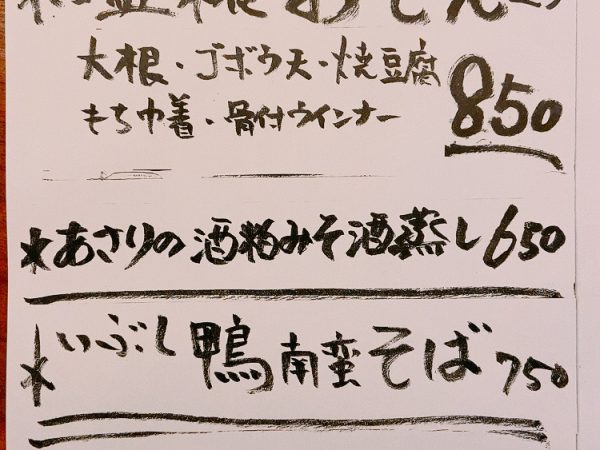 おでん
大根・ゴボウ天・焼豆腐
もち巾着・骨付ウインナー 850
*あさりの酒粕みそ酒蒸し 650
*いぶし鴨南蛮そば 750